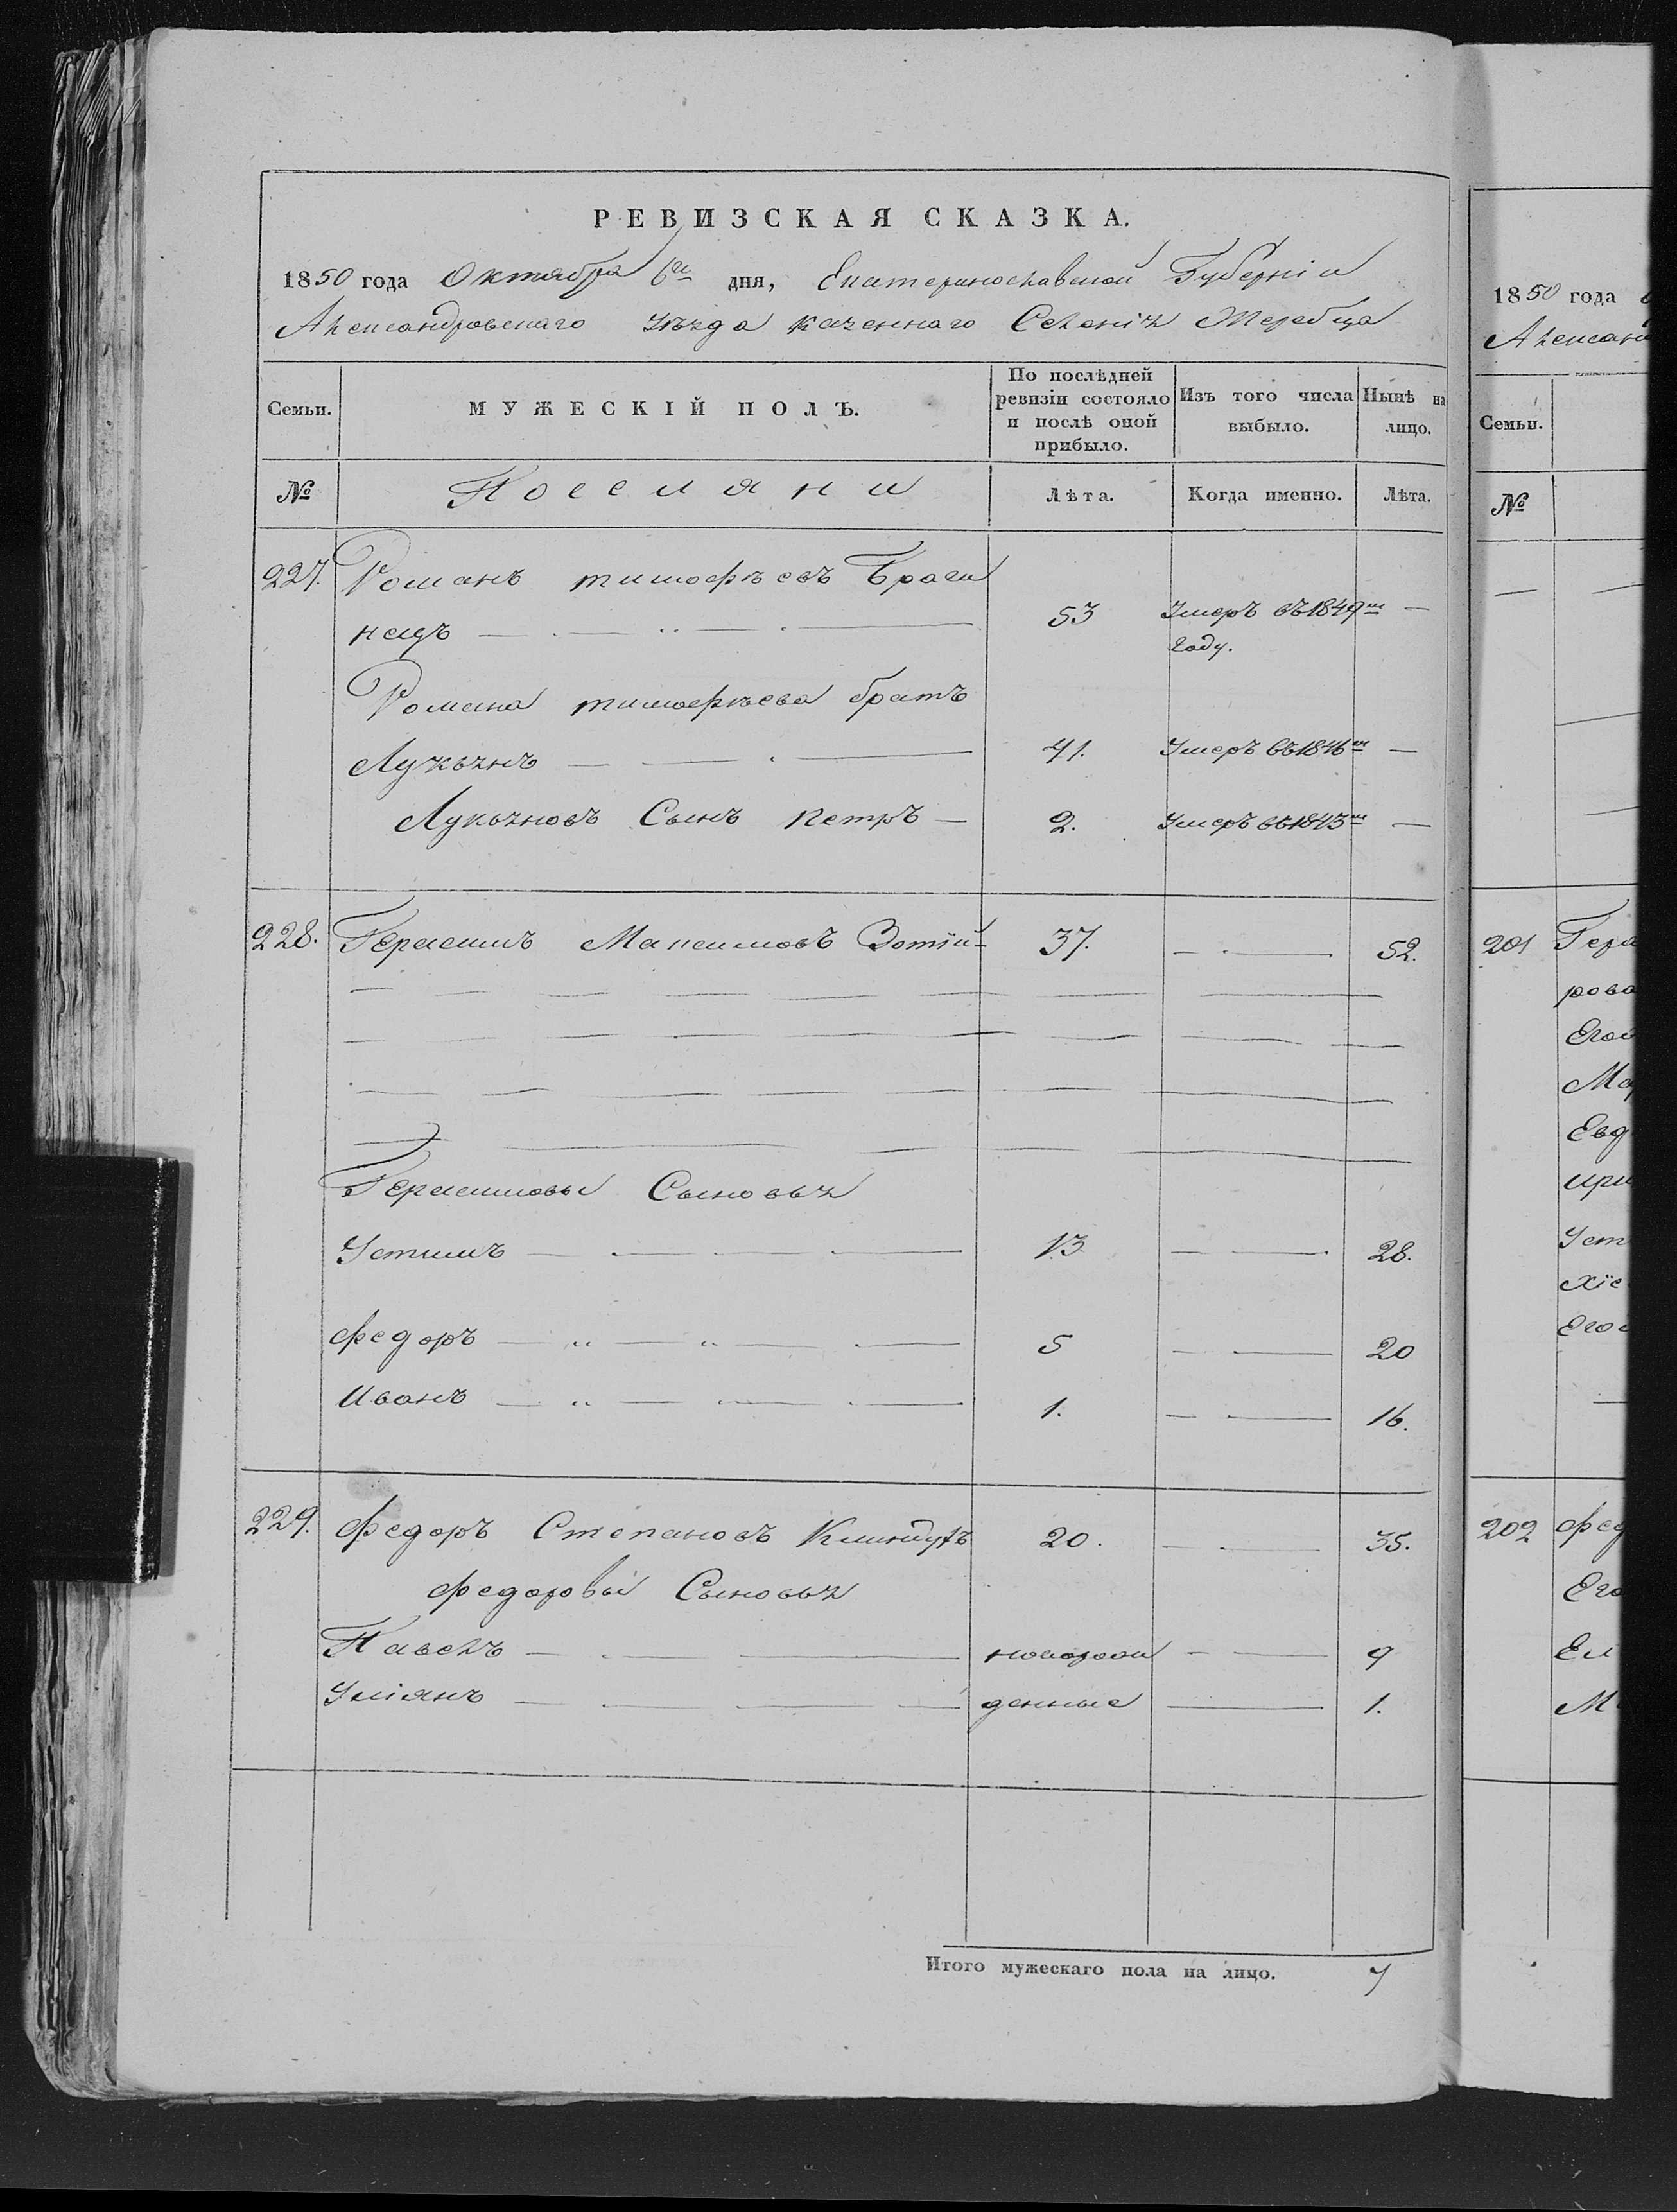 РЕВИЗСКАЯ СКАЗКА.
1850 года Октября 6го дня, Екатеринославской Губерніи
Александровскаго уѣзда казеннаго Селенія Жеребца
Семьи.
МУЖЕСКІЙ ПОЛЪ.
По послѣдней ревизіи состояло и послѣ оной прибыло.
Изъ того числа выбыло.
Нынѣ на лицо.
№ Поселяни Лѣта. Когда именно. Лѣта.
227. Романъ тимофѣевъ Браги
нецъ 53 Умеръ въ 1849м —
году.
Романа тимофѣева братъ
Лукьянъ 41. Умеръ въ 1846м —
Лукьяновъ Сынъ петръ — 2. Умеръ въ 1843м —
228. Герасимъ Максимовъ Зотій 37. — 52.
Герасимовы Сыновья
Устимъ 13 — 28.
Федоръ 5 — 20
Иванъ 1. — 16.
229. Федоръ Степановъ 20. — 35.
Федоровы Сыновья
Павелъ новорож — 9
Уліянъ денные — 1.
Итого мужескаго пола на лицо. 7
1850 года
Александ
Семьи.
№
201 Гера
рова
Его
Ма
Евд
ири
Уст
хіе
Его
202 Фед
Его
Ел
М